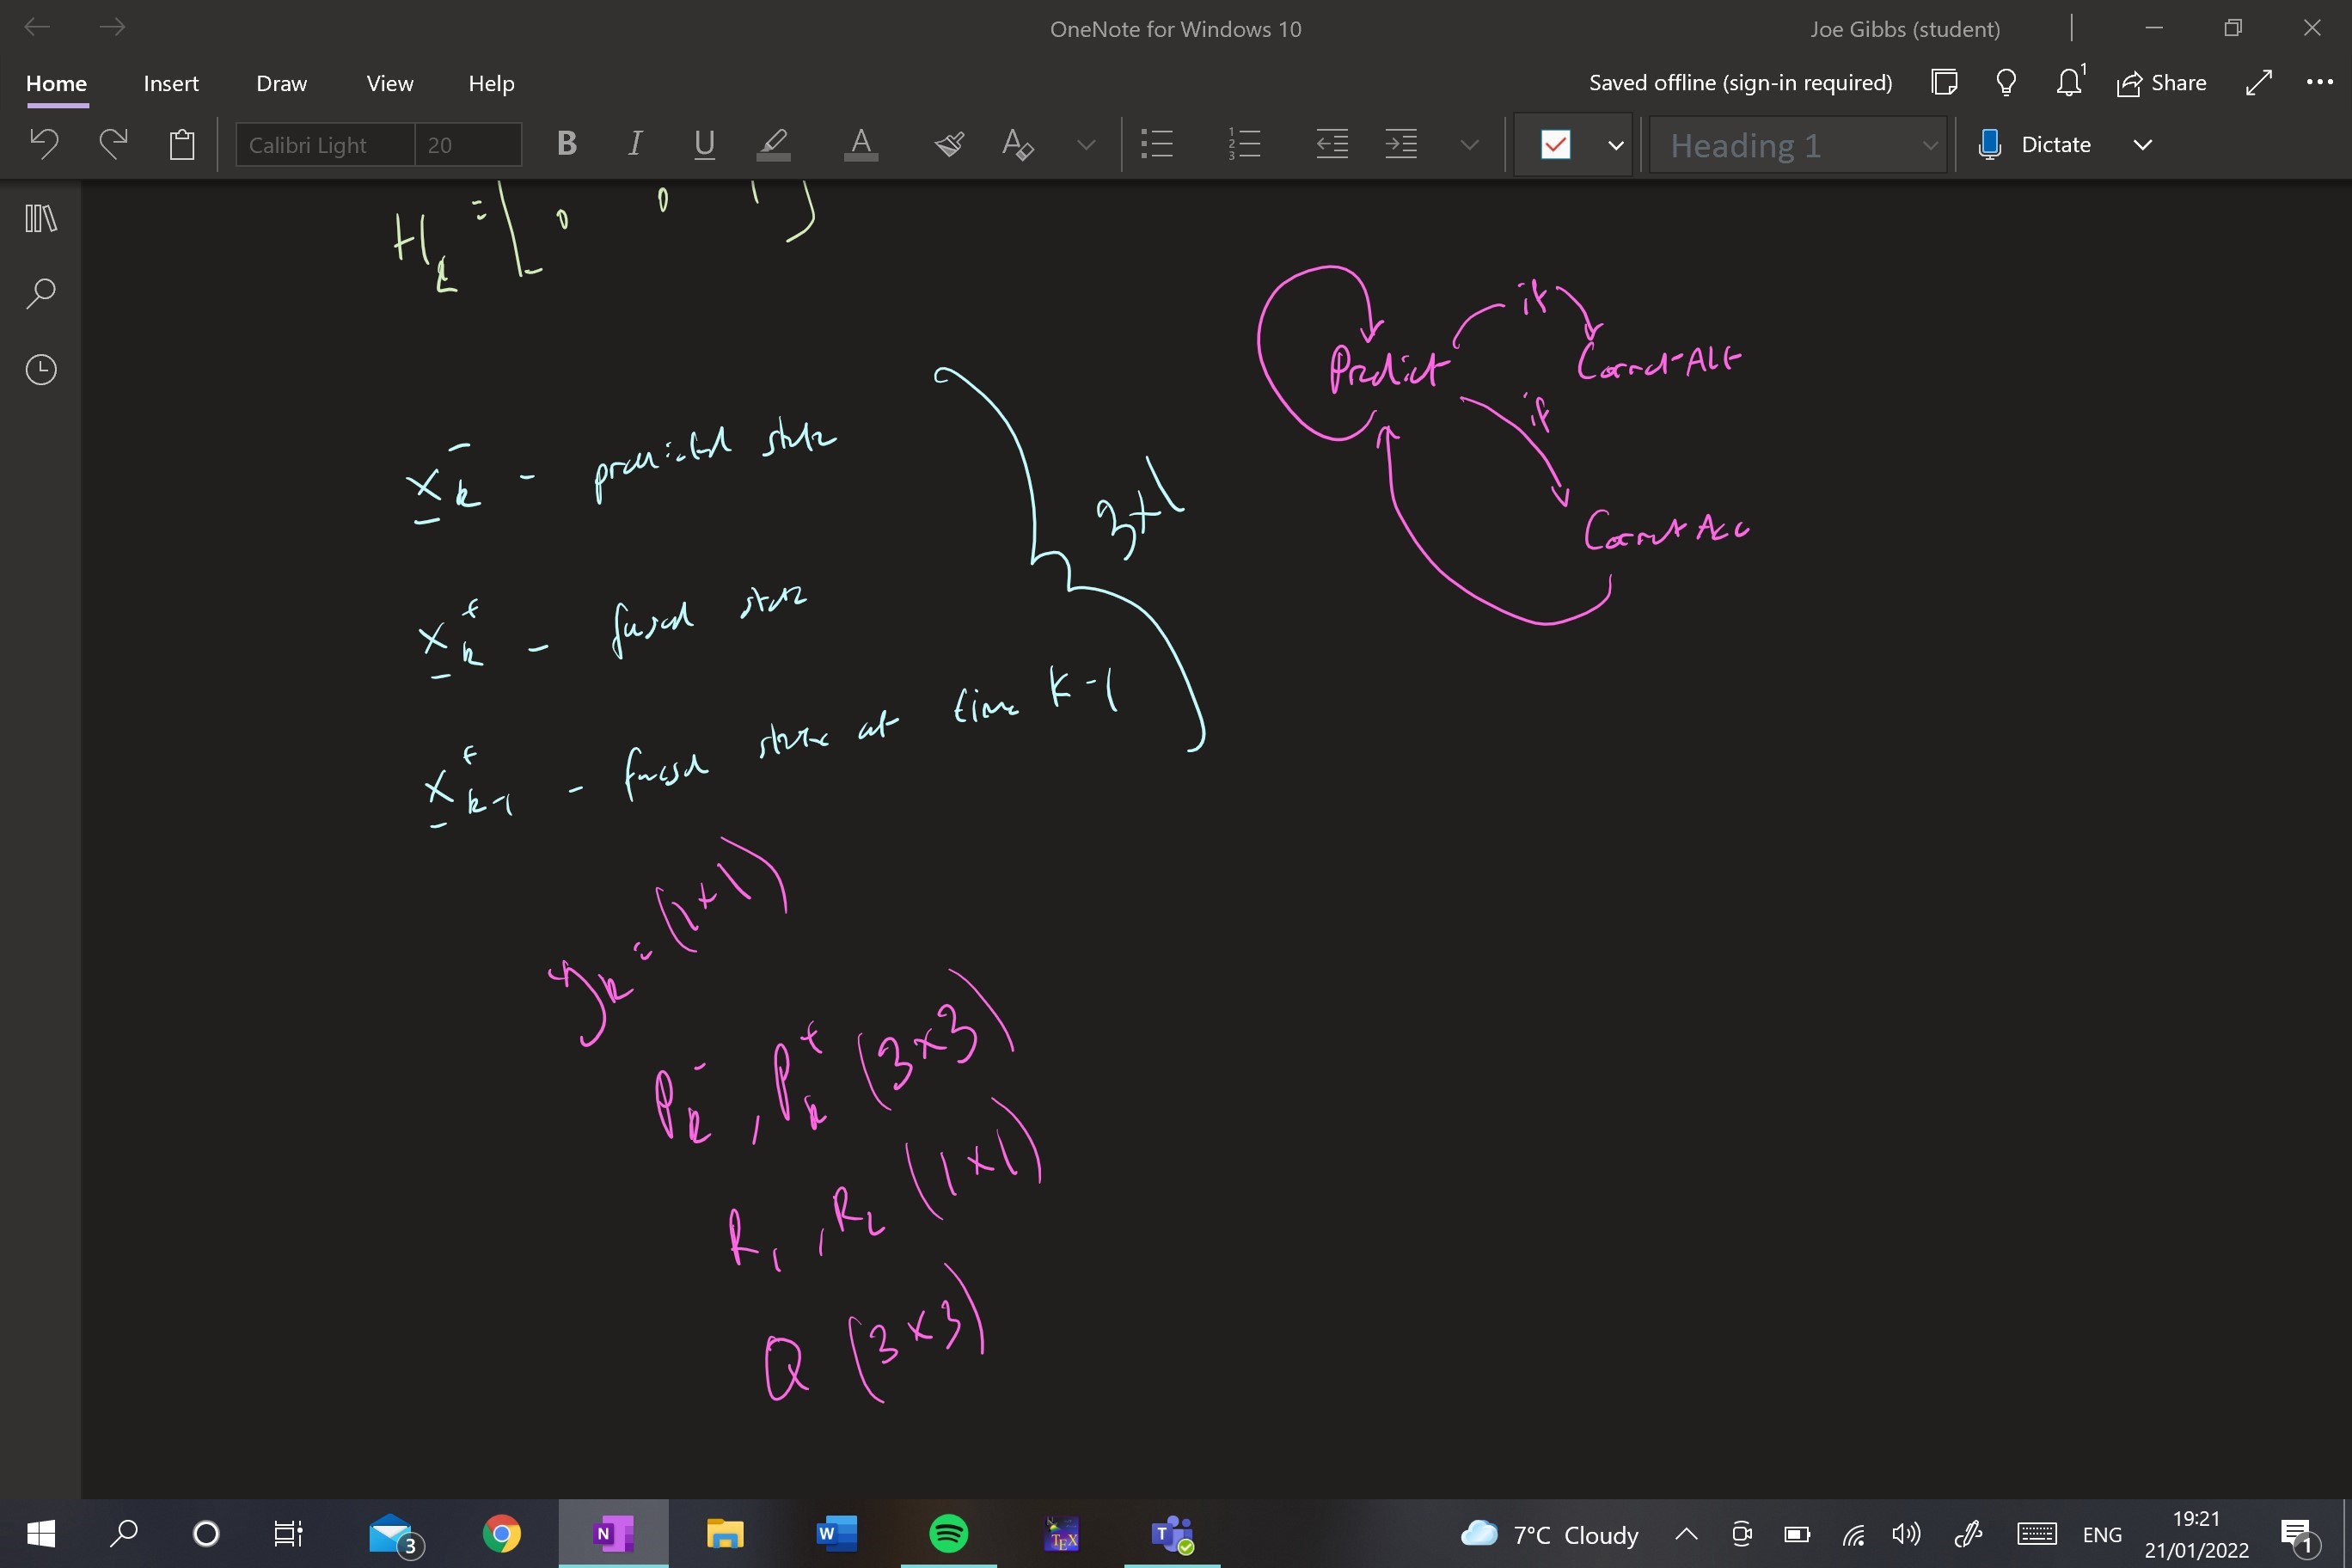 OneNote for Windows 10
Joe Gibbs (student)
Home Insert Draw View Help
Saved offline (sign-in required)
1
Share
Calibri Light 20 B I U A A
Heading 1
Dictate
H = [ 0 0 1 ]
x̲ₖ⁻ - predicted state
x̲ₖ⁺ - fused state
x̲ₖ₋₁⁺ - fused state at time k-1
3×1
Predict
if
Correct Alt
if
Correct Acc
yₖ = (1×1)
Pₖ⁻, Pₖ⁺ (3×3)
R₁, R₂ (1×1)
Q (3×3)
3
N
W
TEX
T
7°C Cloudy
ENG
19:21
21/01/2022
1